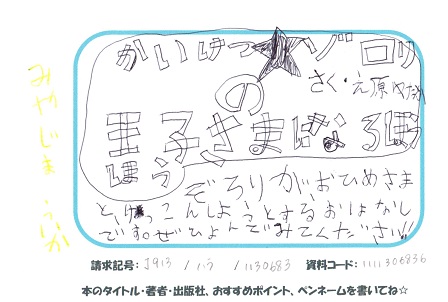 かいけつ★ゾロリ
さく・え原ゆたか
の
王子さまになるほうほう
ぞろりがおひめさま
とけっこんしようとするおはなし
です。ぜひよんでみてください!!
みやじま
請求記号: J913 / ハラ / 1130683 資料コード: 1111306836
本のタイトル・著者・出版社、おすすめポイント、ペンネームを書いてね☆